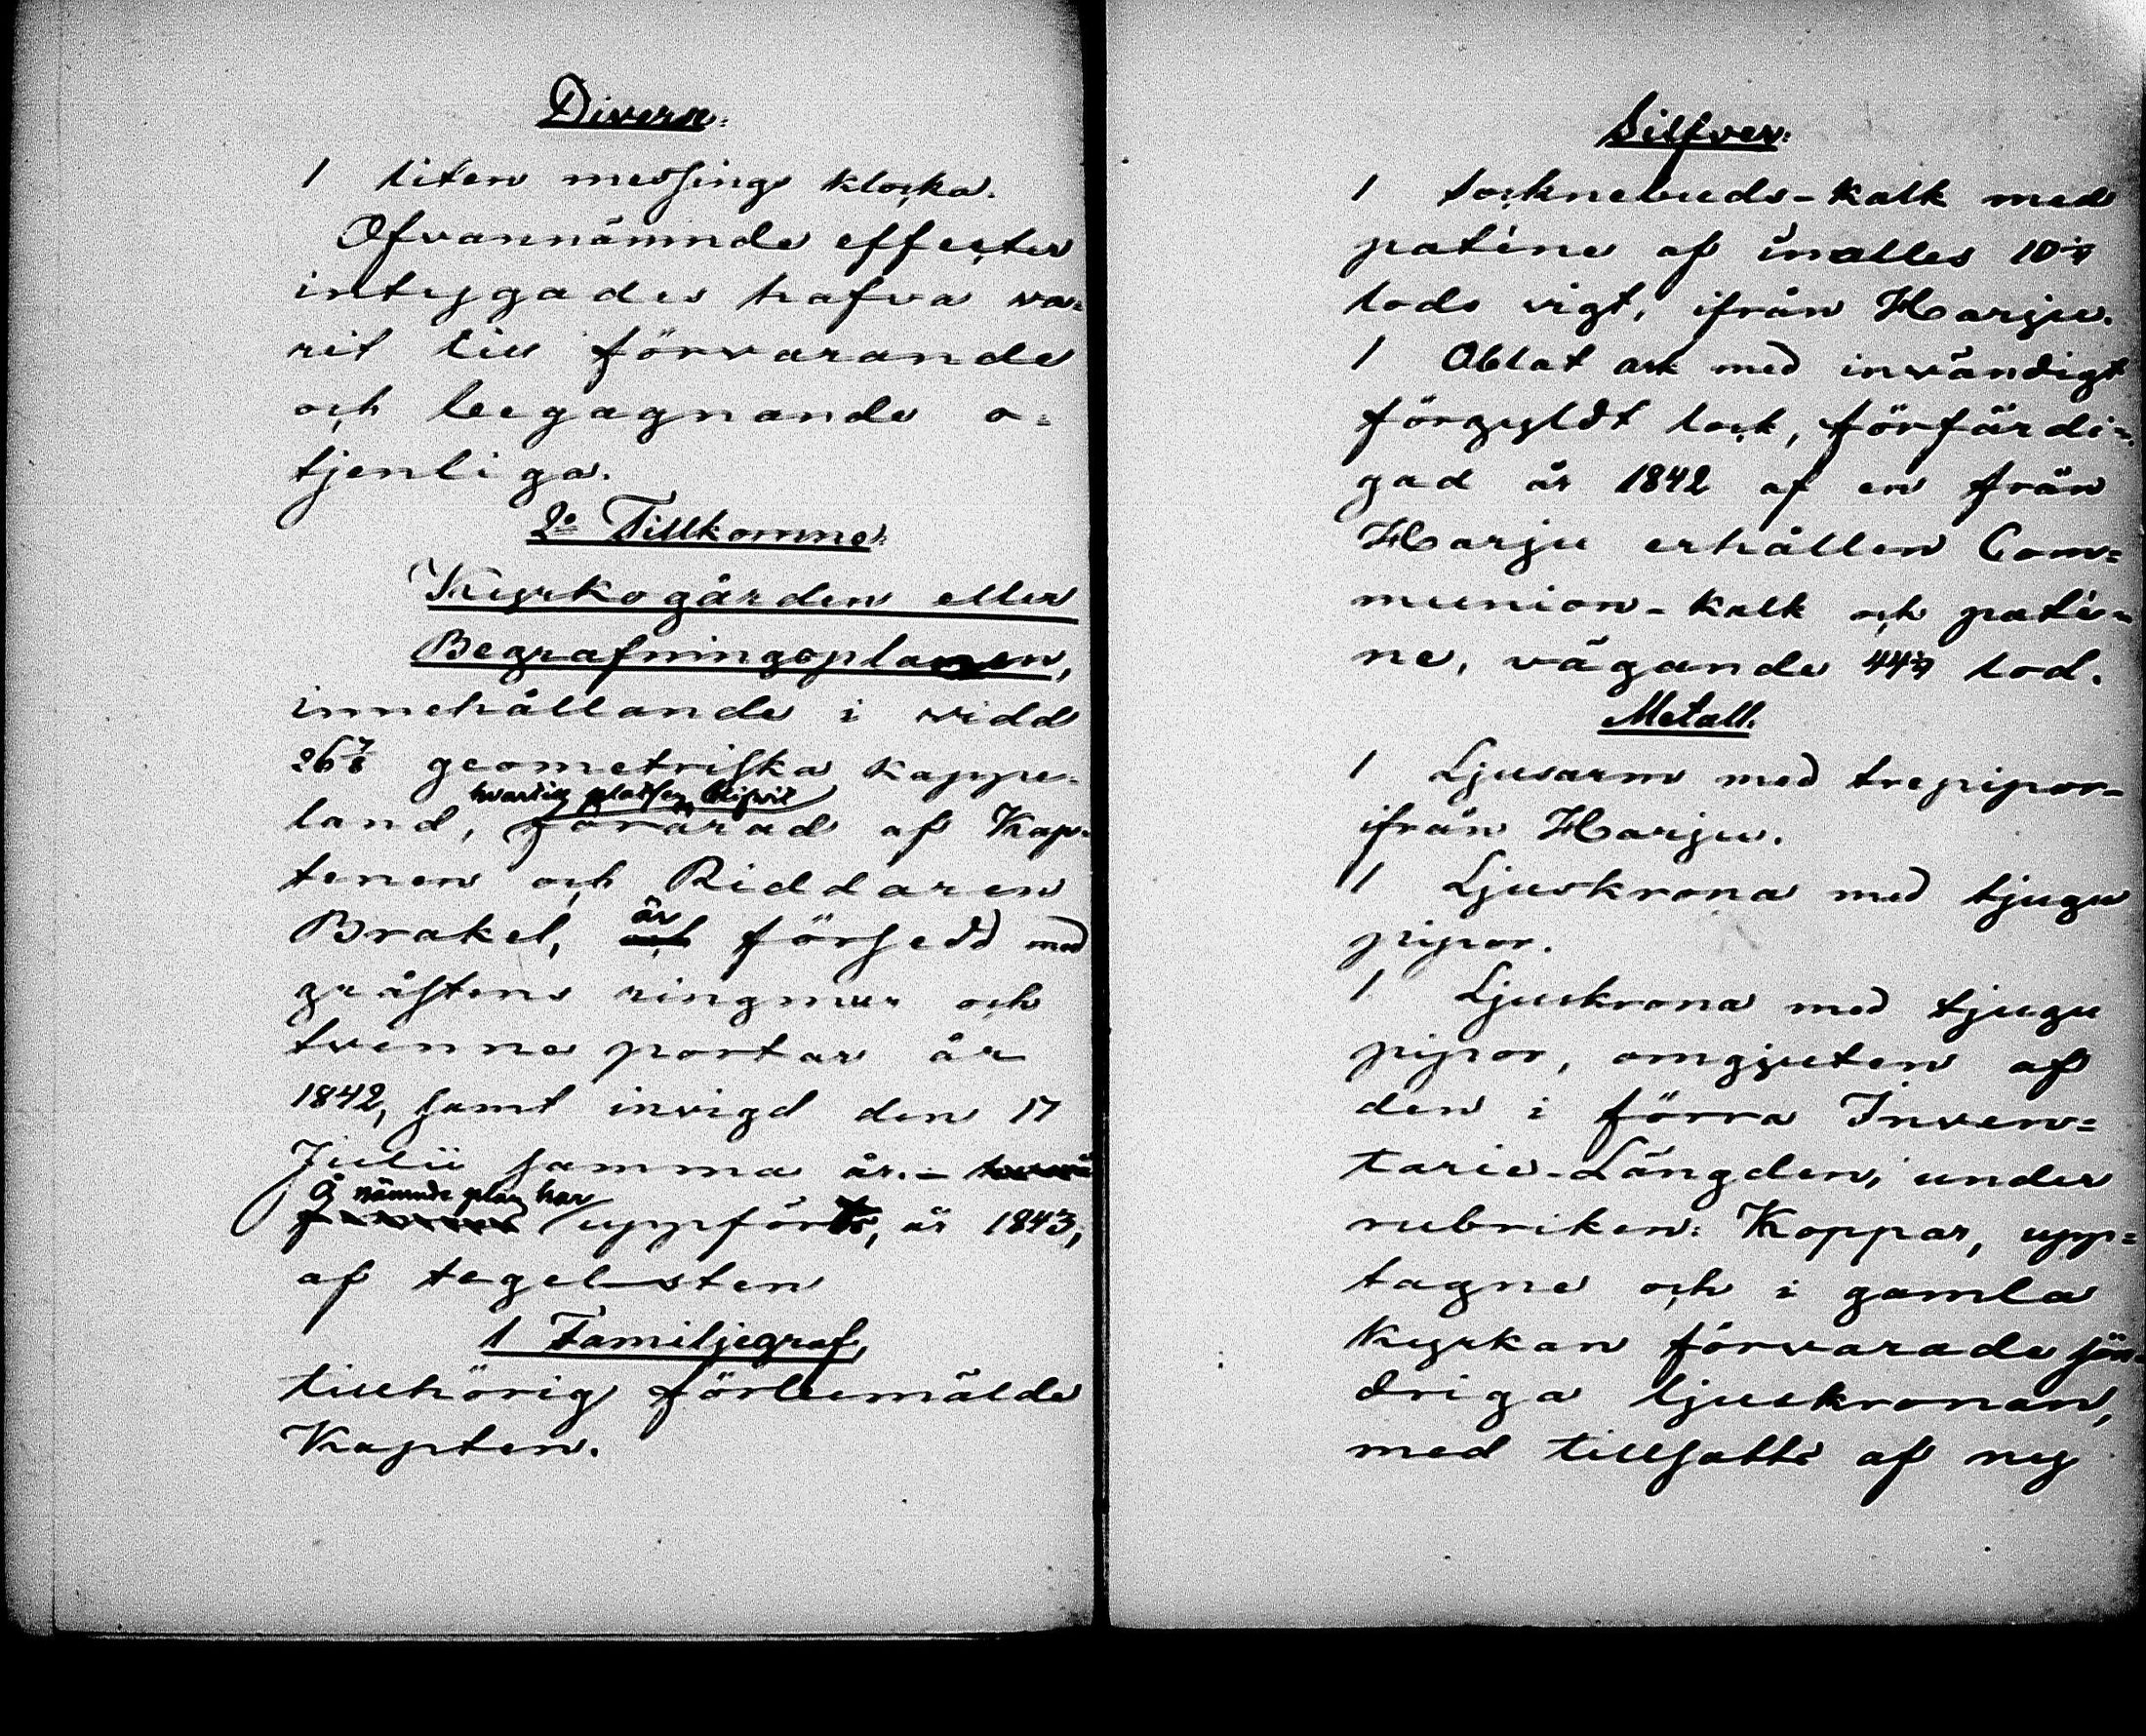 Diverse.
1 liten messings klocka.
Ofvannämnde effecter
intygades hafva va=
rit till förvarande
och begagnande o=
tjenliga.
2o Tillkomne.
Kyrkogården eller
Begrafningsplanen,
innehållande i vidd
26 7/8 geometriska kappe=
hvartill platsen blifvit
land, förärad af Kap=
tenen och Riddaren
är
Brakel, och försedd med
gråstens ringmur och
tvenne portar år
1842, samt invigd den 17
Julii samma år. –
Å nämnde plan har
uppförts, år 1843,
af tegelsten
1 Familjegraf,
tillhörig förbemälde
Kapten.
Silfver.
1 Socknebuds-kalk med
paténe af inalles 10
lods vigt, ifrån Harju.
1 Oblat ask med invändigt
förgyldt lock, förfärdi=
gad år 1842 af en från
Harju erhållen Com=
munion-kalk och paté=
ne, vägande 44 lod.
Metall.
1 Ljusarm med trepipor
ifrån Harju.
1 Ljuskrona med tjugu
pipor.
1 Ljuskrona med tjugu
pipor, omgjuten af
den i förra Inven=
tarie-Längden, under
rubriken: Koppar, upp=
tagne och i gamla
Kyrkan förvarade sön=
driga ljuskronan,
med tillsatts af ny